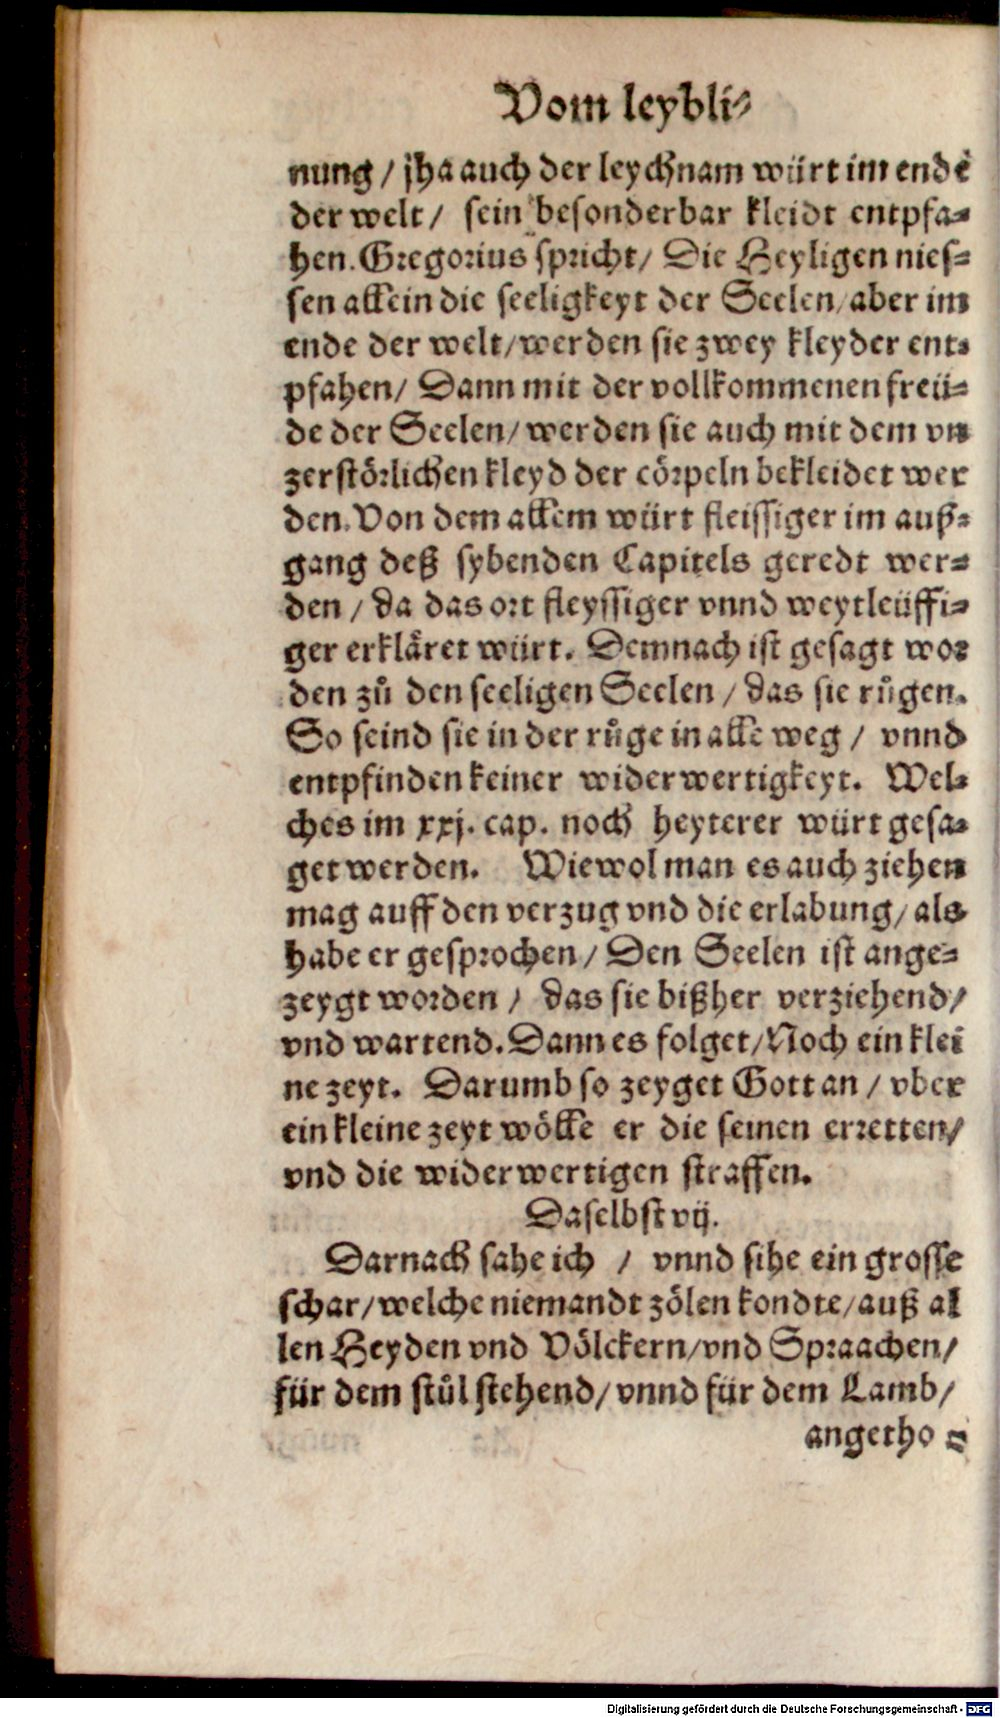 Vom leybli⸗
nung / jha auch der leychnam würt im ende
der welt / sein besonderbar kleidt entpfa⸗
hen. Gregorius spricht / Die Heyligen nies⸗
sen allein die seeligkeyt der Seelen / aber im
ende der welt / werden sie zwey kleyder ent⸗
pfahen / Dann mit der vollkommenen freü⸗
de der Seelen / werden sie auch mit dem vn
zerstörlichen kleyd der cörpeln bekleidet wer
den. Von dem allem würt fleissiger im auß⸗
gang deß sybenden Capitels geredt wer⸗
den / da das ort fleyssiger vnnd weytleüffi⸗
ger erkläret würt. Demnach ist gesagt wor
den zů den seeligen Seelen / das sie růgen.
So seind sie in der růge in alle weg / vnnd
entpfinden keiner widerwertigkeyt. Wel⸗
ches im xxj. cap. noch heyterer würt gesa⸗
get werden. Wiewol man es auch ziehen
mag auff den verzug vnd die erlabung / als
habe er gesprochen / Den Seelen ist ange⸗
zeygt worden / das sie bißher verziehend /
vnd wartend. Dann es folget / Noch ein klei
ne zeyt. Darumb so zeyget Gott an / vber
ein kleine zeyt wölle er die seinen erretten /
vnd die widerwertigen straffen.
Daselbst vij.
Darnach sahe ich / vnnd sihe ein grosse
schar / welche niemandt zölen kondte / auß al
len Heyden vnd Völckern / vnd Spraachen /
für dem stůl stehend / vnnd für dem Lamb /
angetho⸗
Digitalisierung gefördert durch die Deutsche Forschungsgemeinschaft - DFG